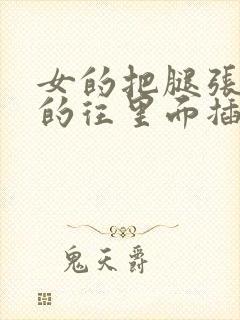 女的把腿張
的往里而插
鬼天爵